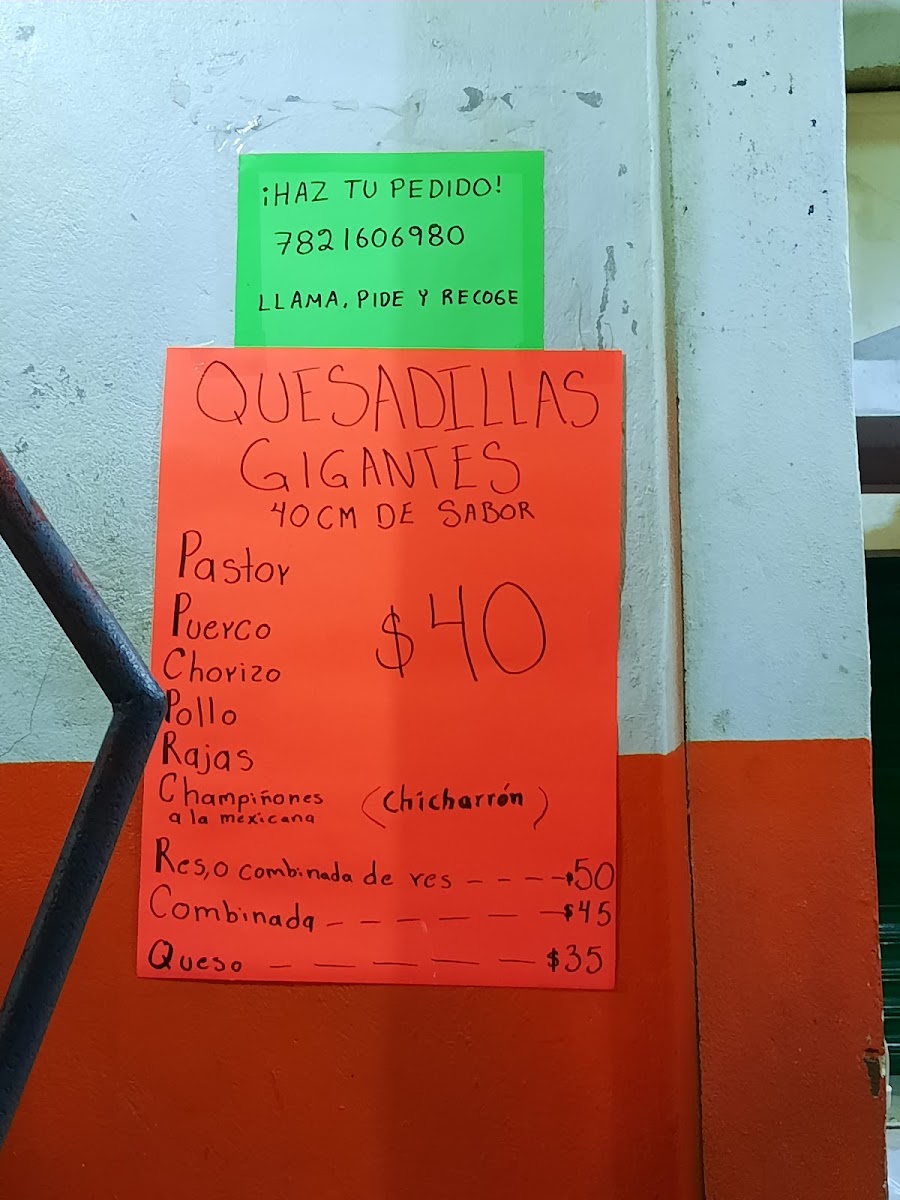 ¡HAZ TU PEDIDO!
7821606980
LLAMA, PIDE Y RECOGE
QUESADILLAS
GIGANTES
40CM DE SABOR
Pastor
Puerco
$40
Chorizo
Pollo
Rajas
Champiñones
a la mexicana
(Chicharrón)
Res, o combinada de res ---- $50
Combinada ------ $45
Queso ----- $35